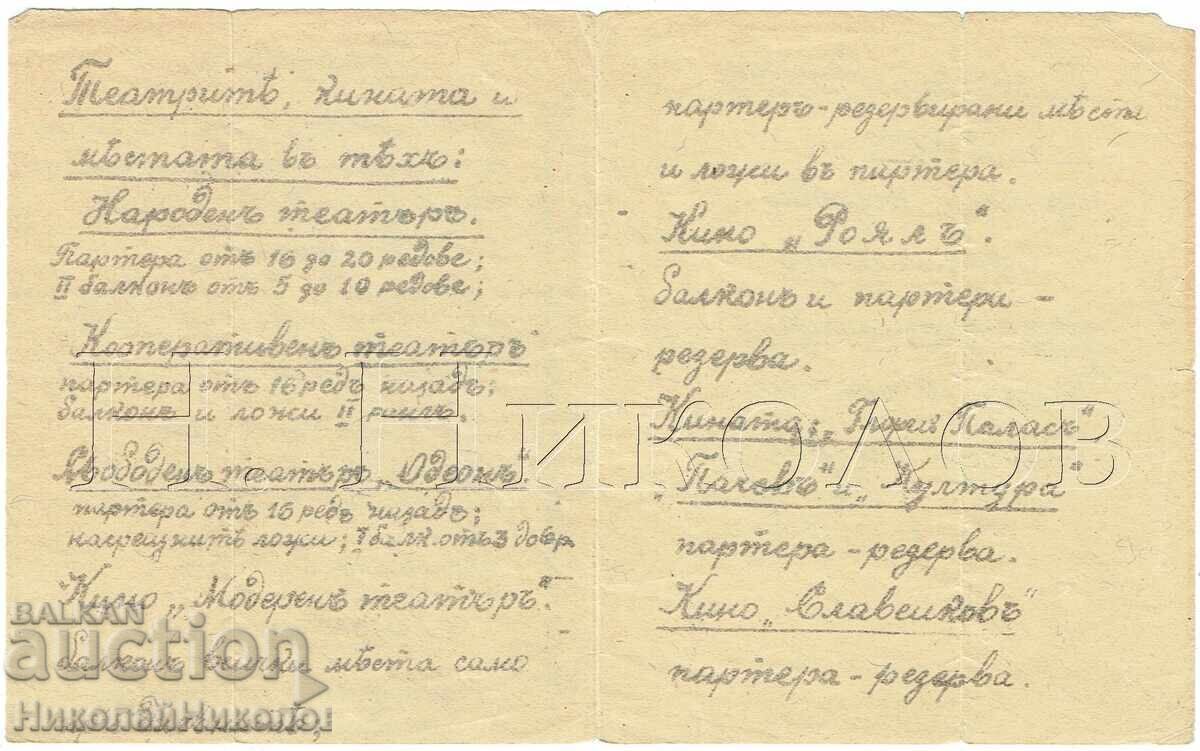 Театритѣ, кината и
мѣстата въ тѣхъ:
Народенъ театъръ.
Партера отъ 16 до 20 редове;
II балконъ отъ 5 до 10 редове;
Кооперативенъ театъръ
партера отъ 16 редъ назадъ;
балконъ и ложи II
Свободенъ театъръ „Одеонъ“.
партера отъ 15 редъ назадъ;
ложи; I балк. отъ 3
Кино „Модеренъ театъръ“.
балконъ всички мѣста само
партеръ-резервирани мѣста
и ложи въ партера.
Кино „Роялъ“.
балконъ и партери -
резерва.
Кината: „Глория Паласъ“
„Пачевъ“ и „Култура“
партера - резерва.
Кино „Славейковъ“
партера - резерва.
Н. Николов
BALKAN
auction
НиколайНиколов